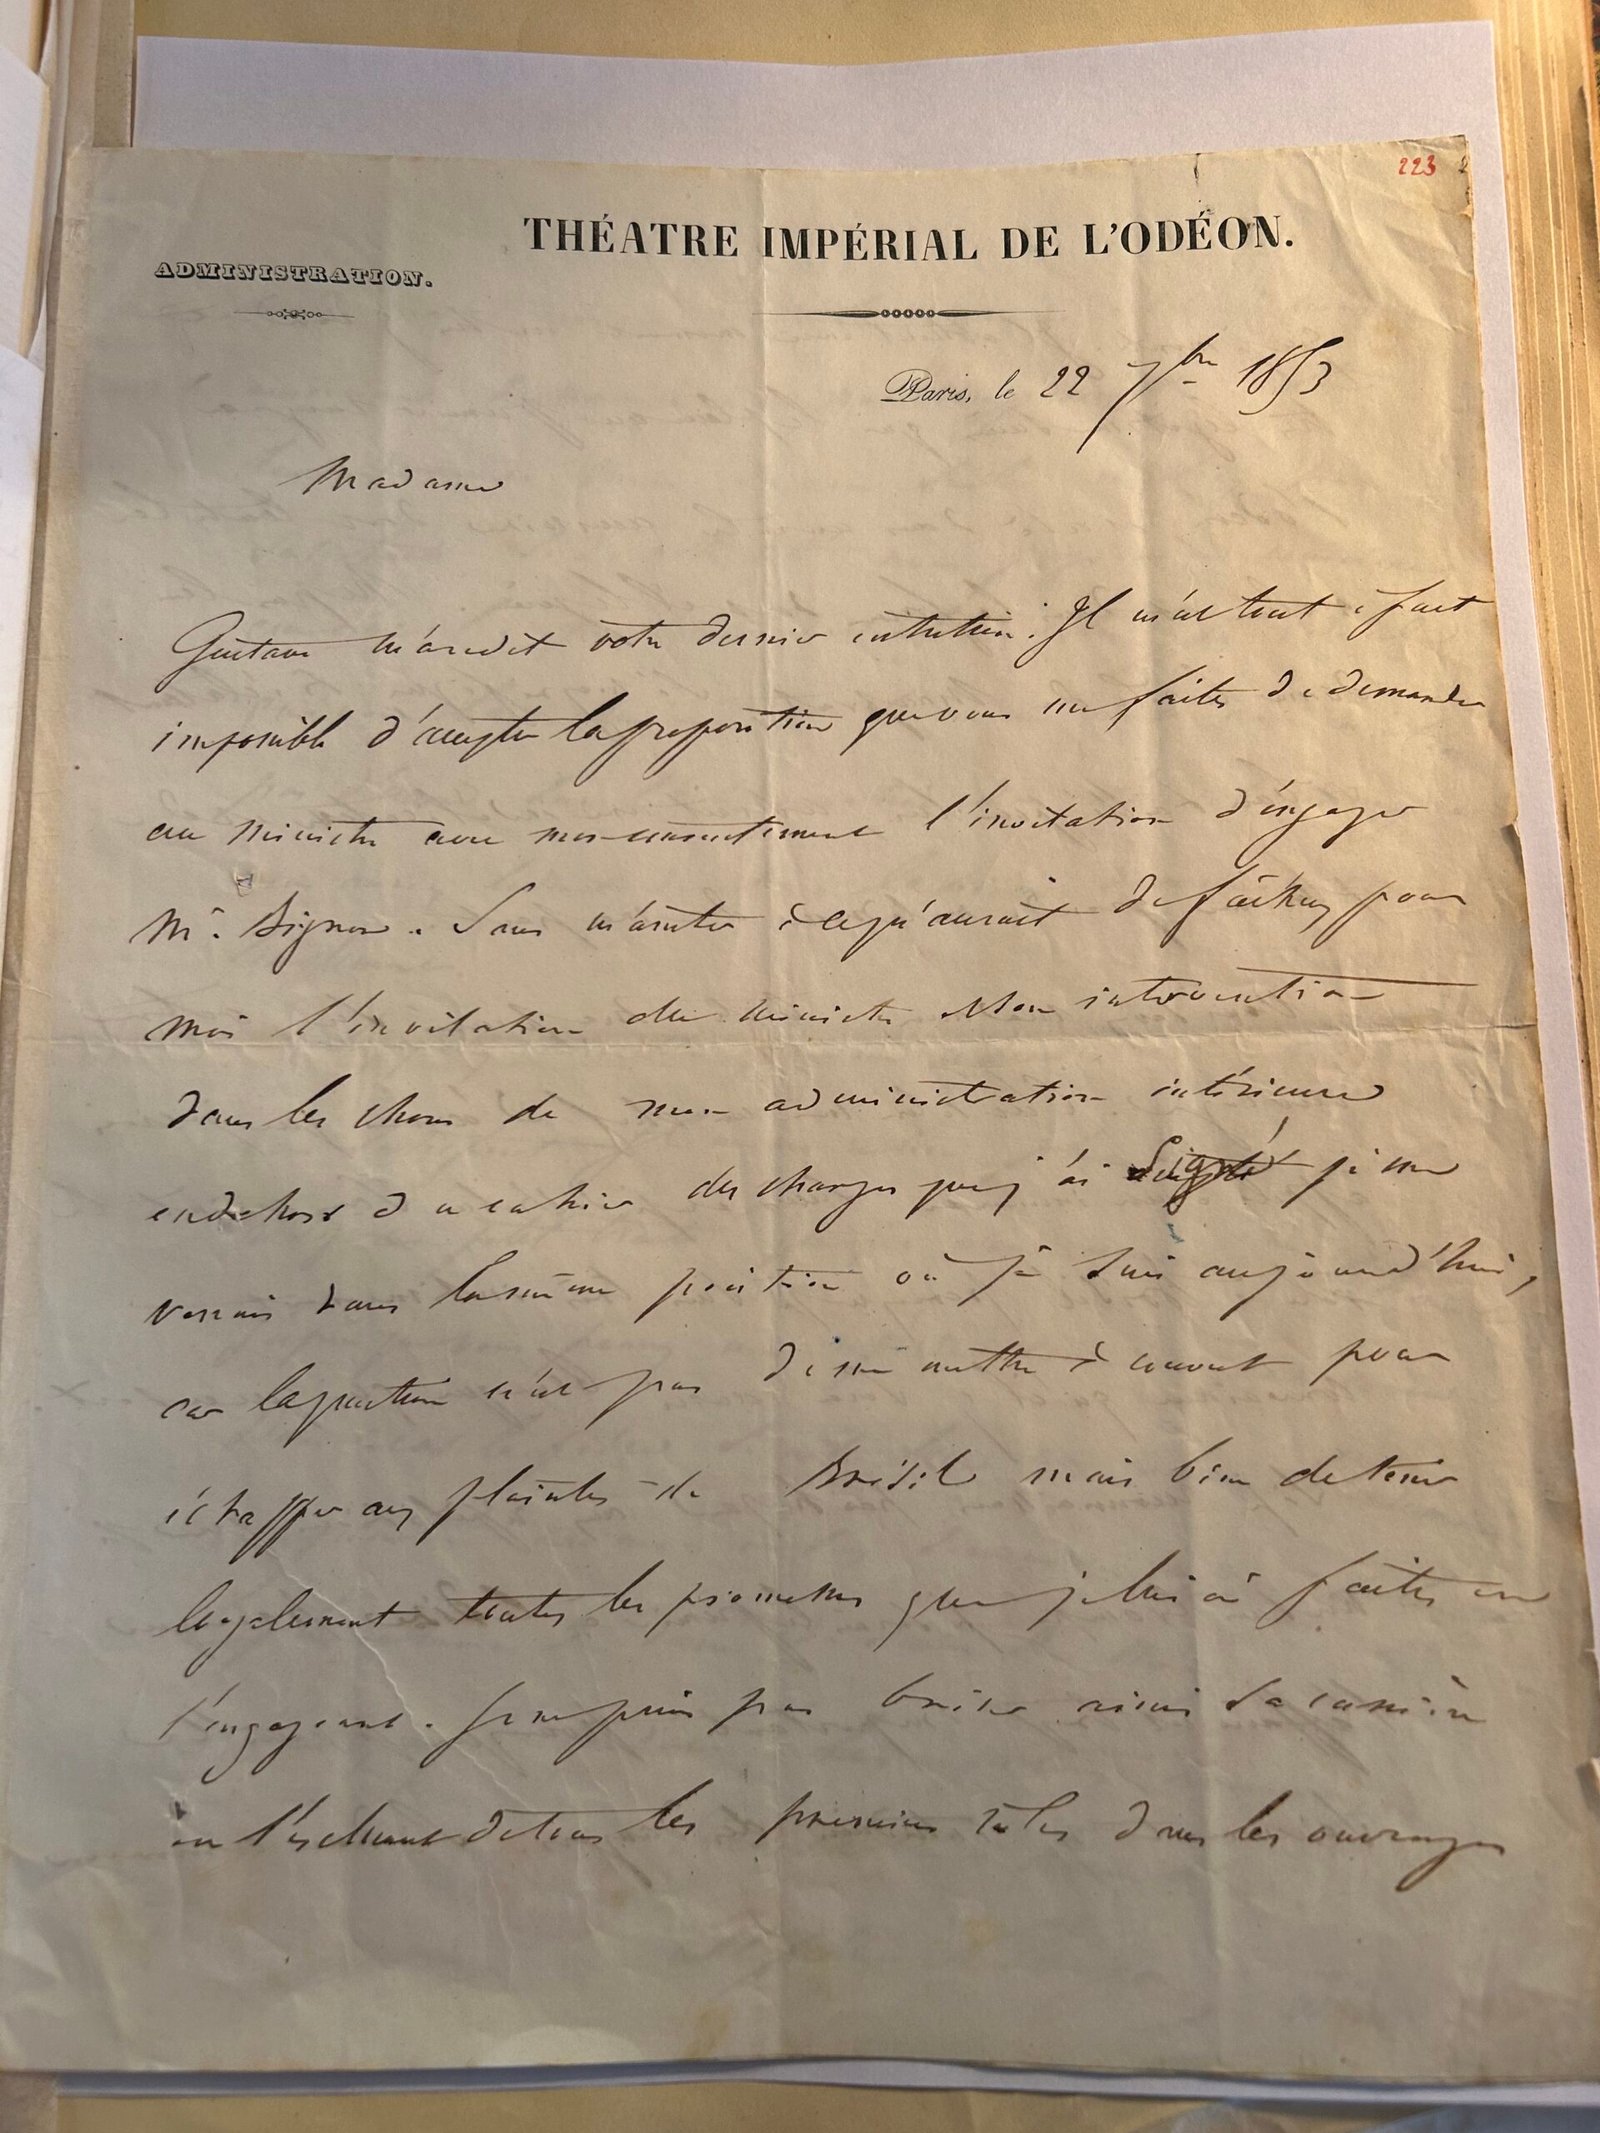 223
THÉATRE IMPÉRIAL DE L'ODÉON.
ADMINISTRATION.
Paris, le 22 7bre 1853
Madame
Gustave m'a redit votre dernier entretien. Il m'est tout à fait
impossible d'accepter la proposition que vous me faites de demander
au ministre avec mon consentement l'invitation d'engager
Mr. Bignon. Sans m'arrêter à ce qu'aurait de fâcheux pour
moi l'invitation du ministre Son intervention
dans les choses de mon administration intérieure
en dehors du cahier des charges que j'ai signé je me
verrais dans la même position où je suis aujourd'hui,
car la question n'est pas de me mettre à couvert pour
échapper aux plaintes de Brésil mais bien de tenir
loyalement toutes les promesses que je lui ai faites en
l'engageant. Je ne puis pas briser ainsi sa carrière
en l'excluant de tous les premiers rôles dans les ouvrages